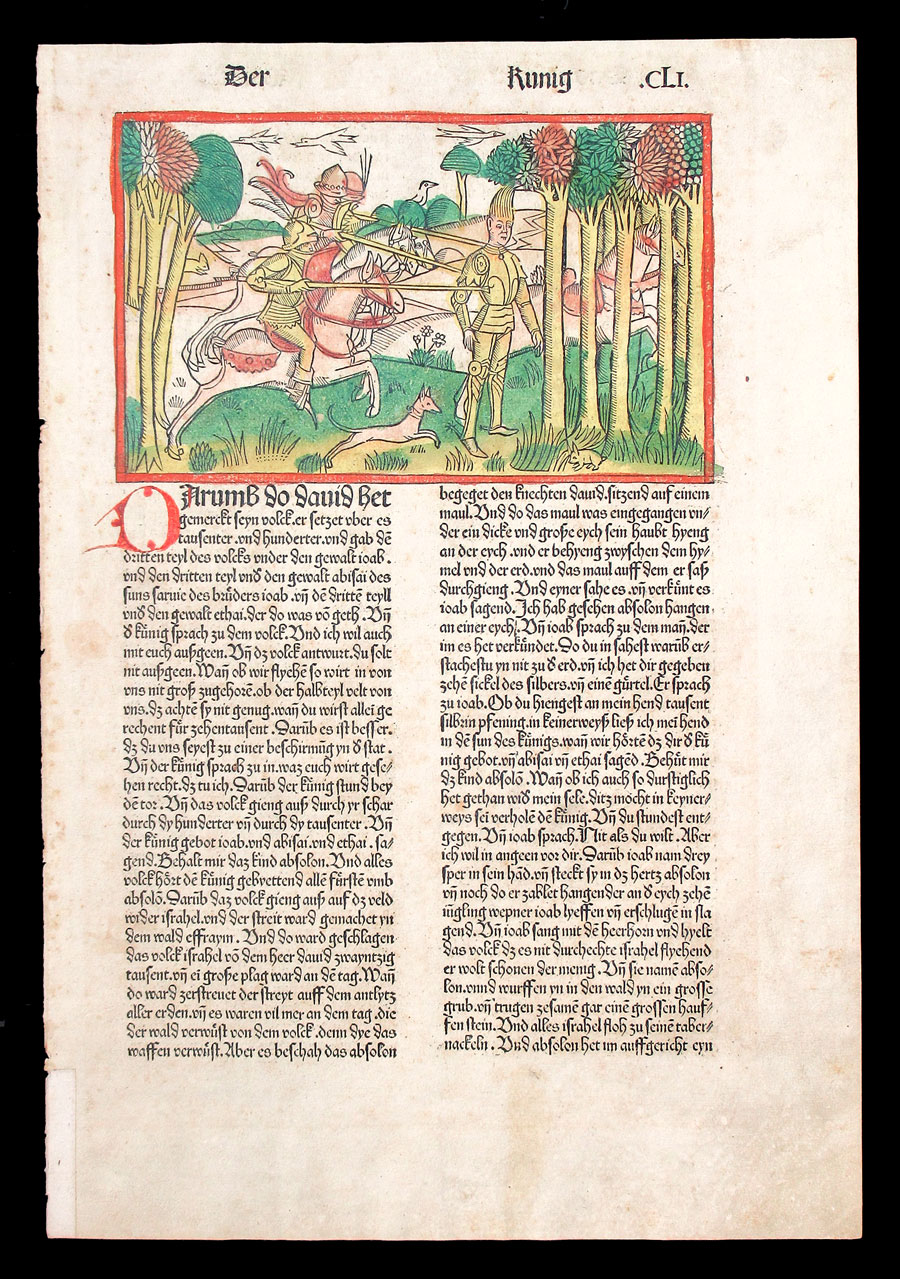 Der Kunig .CLI.
DArumb do dauid het
gemerckt seyn volck.er setzet vber es
tausenter.vnd hunderter.vnd gab dē
dritten teyl des volcks vnder den gewalt ioab.
vnd den dritten teyl vnd den gewalt abisai des
suns saruie des brůders ioab.vn̄ dē drittē teyll
vnd den gewalt ethai.der do was vō geth. Vn̄
d kúnig sprach zu dem volck.Vnd ich wil auch
mit euch außgeen.Vn̄ dz volck antwurt.du solt
nit außgeen.Wan̄ ob wir flyehē so wirt in von
vns nit groß zugehorē.ob der halbteyl velt von
vns.dz achtē sy nit genug.wan̄ du wirst allei ge
rechent fúr zehentausent. Darūb es ist besser.
dz du vns seyest zu einer beschirmūg yn d stat.
Vn̄ der kúnig sprach zu in.waz euch wirt gese-
hen recht.dz tu ich. Darūb der kúnig stund bey
dē tor. Vn̄ das volck gieng auß durch yr schar
durch dy hunderter vn̄ durch dy tausenter. Vn̄
der kúnig gebot ioab.vnd abisai.vnd ethai. sa-
gend.Behalt mir daz kind absolon.Vnd alles
volck hört dē kúnig gebyettend allē fúrstē vmb
absolō.Darūb daz volck gieng auß auf dz veld
wider israhel.vnd der streit ward gemachet yn
dem wald effraym. Vnd do ward geschlagen
das volck israhel vō dem heer dauid zwayntzig
tausent.vn̄ ei große plag ward an dē tag.Wan̄
do ward zerstreuet der streyt auff dem antlytz
aller erden.vn̄ es waren vil mer an dem tag.die
der wald verwúst von dem volck.denn dye das
waffen verwúst.Aber es beschah das absolon
begeget den knechten dauid.sitzend auf einem
maul.Vnd do das maul was eingegangen vn-
der ein dicke vnd große eych sein haubt hyeng
an der eych.vnd er behyeng zwyschen dem hy-
mel vnd der erd.vnd das maul auff dem er saß
durchgieng. Vnd eyner sahe es.vn̄ verkúnt es
ioab sagend.Ich hab gesehen absolon hangen
an einer eych. Vn̄ ioab sprach zu dem man̄.der
im es het verkúndet.So du in sahest warūb er-
stachestu yn nit zu d erd.vn̄ ich het dir gegeben
zehē sickel des silbers.vn̄ einē gúrtel.Er sprach
zu ioab.Ob du hiengest an mein hend tausent
silbrin pfening.in keinerweyß ließ ich mei hend
in dē sun des kúnigs.wan̄ wir hörtē dz dir d kú
nig gebot.vn̄ abisai vn̄ ethai sagēd.Behút mir
dz kind absolō.Wan̄ ob ich auch so durstiglich
het gethan wid mein sele.ditz möcht in keyner-
weys sei verholē dē kúnig.Vn̄ du stundest ent-
gegen.Vn̄ ioab sprach.Nit als du wilt.Aber
ich wil in angeen vor dir.Darūb ioab nam drey
sper in sein hād.vn̄ steckt sy in dz hertz absolon
vn̄ noch do er zablet hangender an d eych zehē
iúngling wepner ioab lyeffen vn̄ erschlugē in sla
gend.Vn̄ ioab sang mit dē heerhorn vnd hyelt
das volck dz es nit durchechte israhel flyehend
er wolt schonen der menig.Vn̄ sie namē abso-
lon.vnnd wurffen yn in den wald yn ein grosse
grub.vn̄ trugen zesamē gar einē grossen hauf-
fen stein.Vnd alles israhel floh zu seinē taber-
nackeln. Vnd absolon het im auffgericht eyn